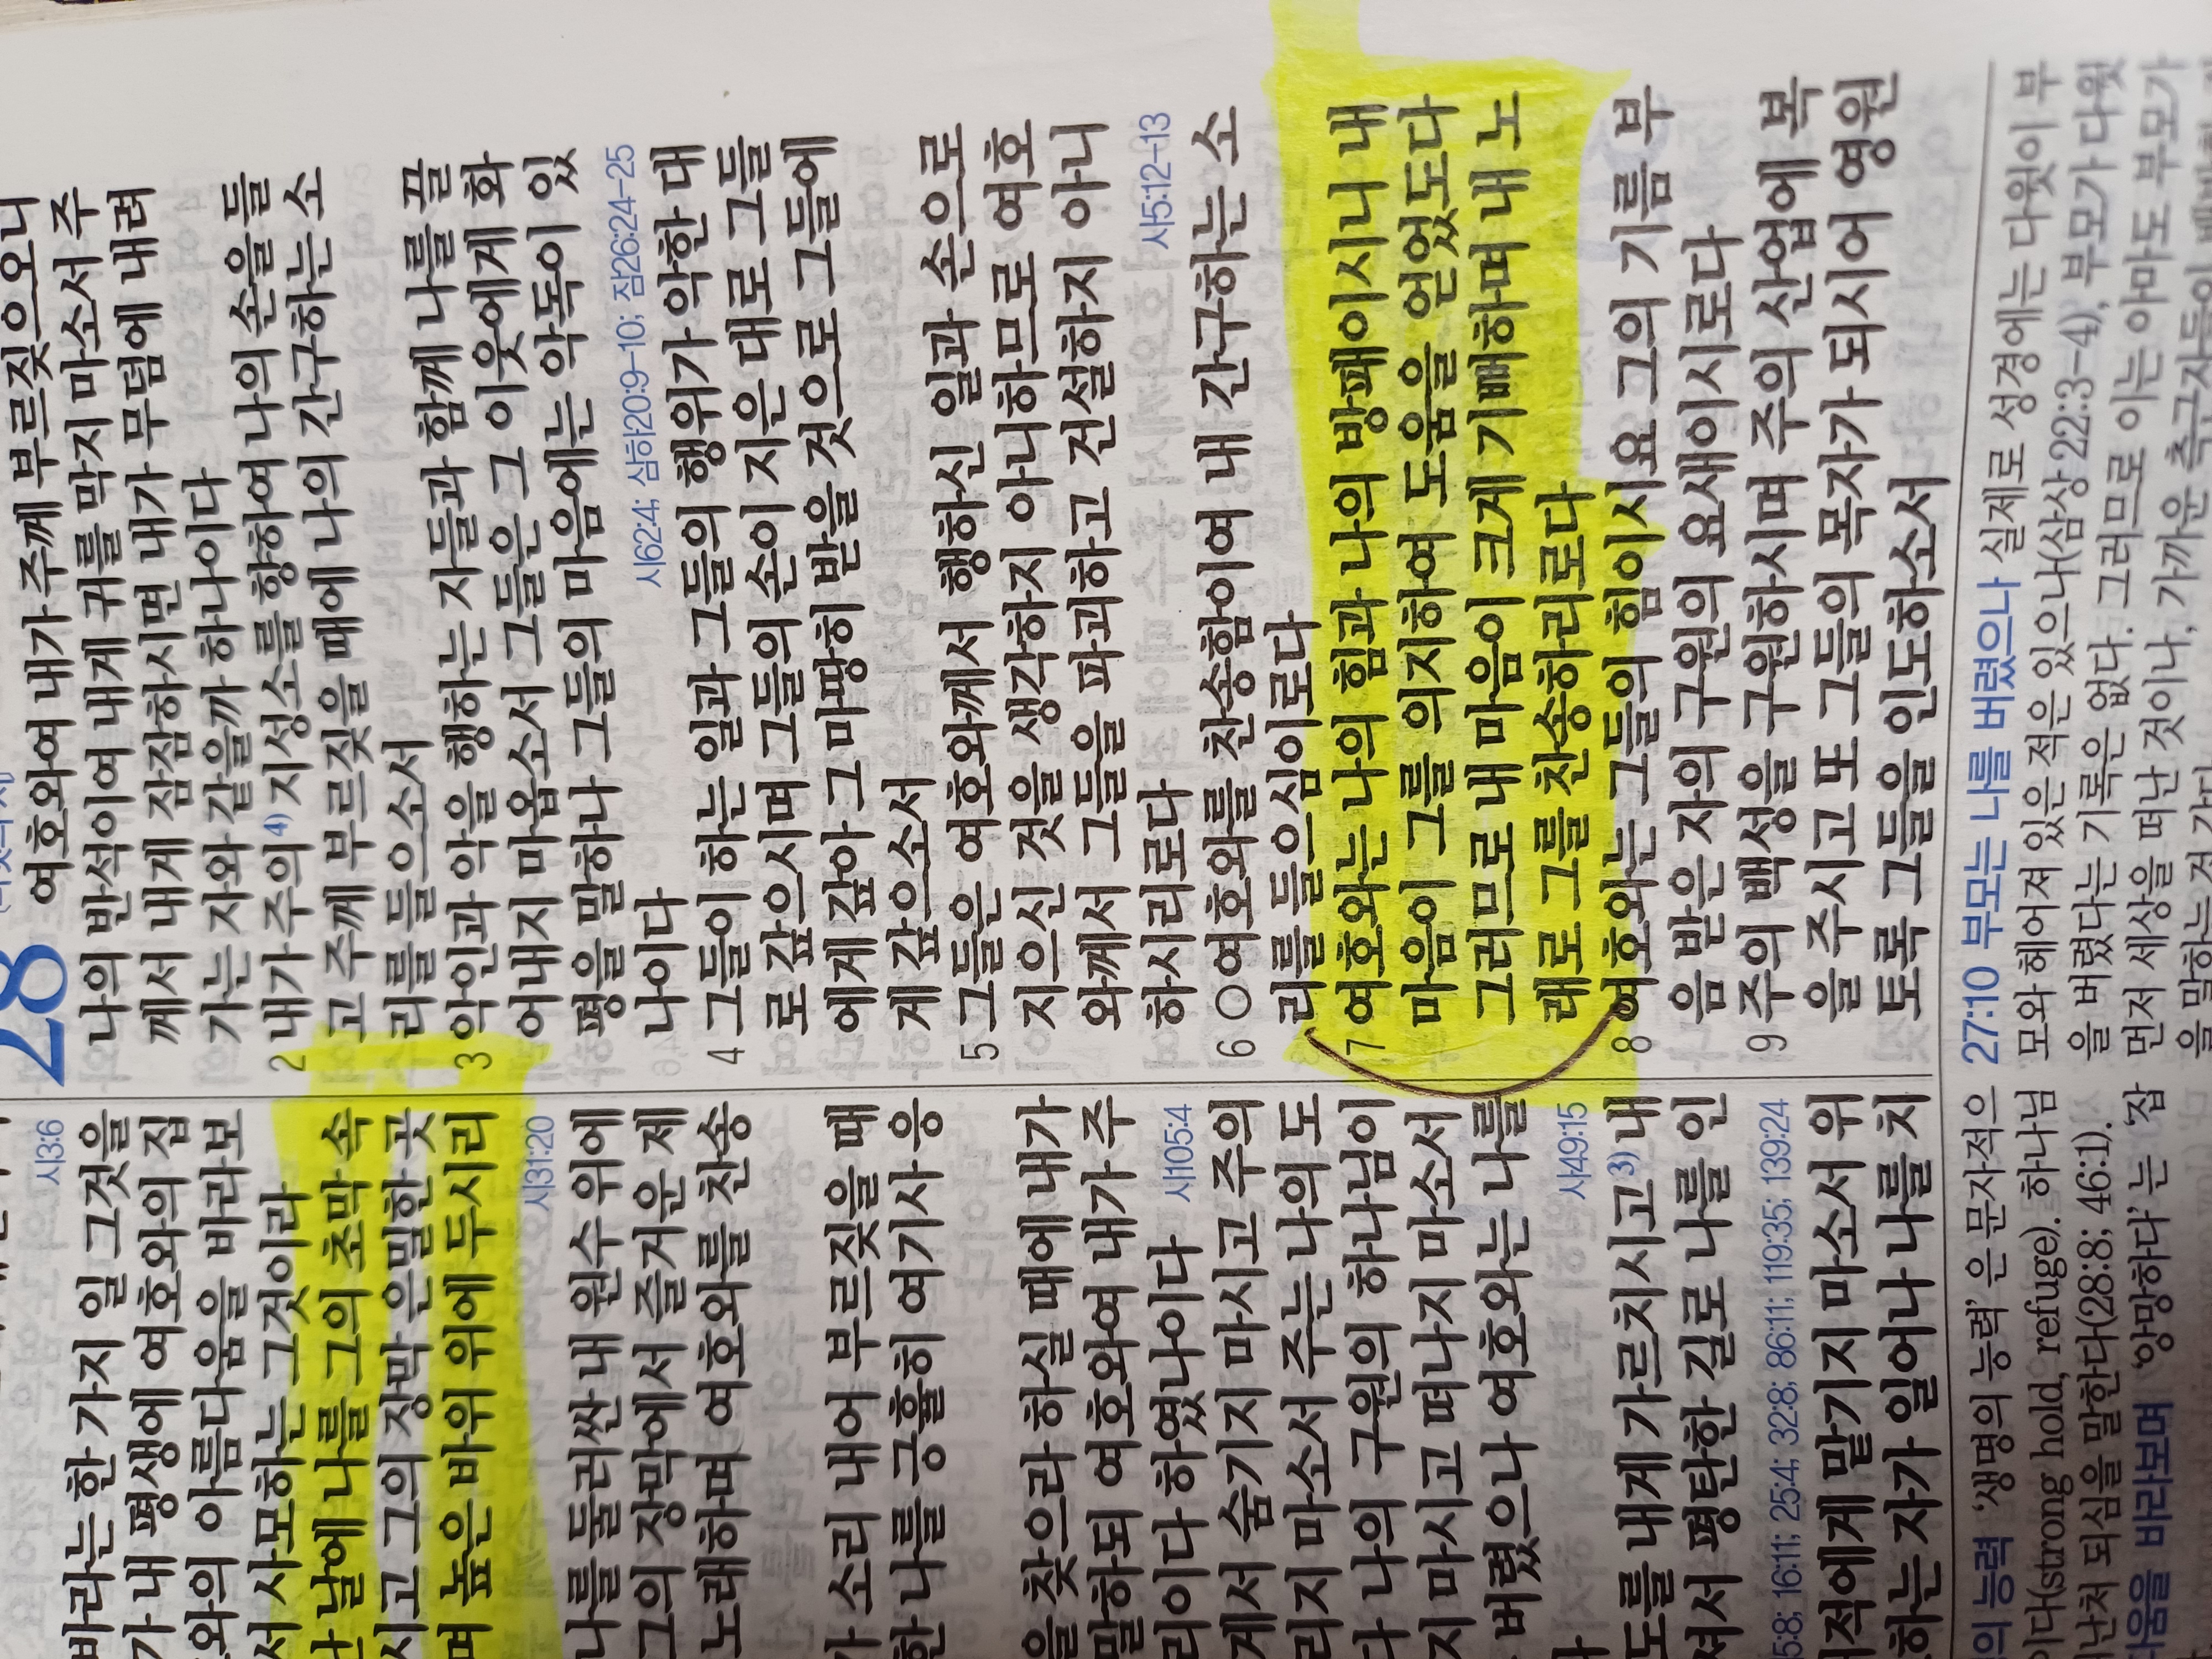 시3:6
바라는 한 가지 일 그것을
가 내 평생에 여호와의 집
와의 아름다움을 바라보
서 사모하는 그것이라
날에 나를 그의 초막 속
시고 그의 장막 은밀한 곳
며 높은 바위 위에 두시리
시31:20
나를 둘러싼 내 원수 위에
그의 장막에서 즐거운 제
노래하며 여호와를 찬송
가 소리 내어 부르짖을 때
한 나를 긍휼히 여기사 응
을 찾으라 하실 때에 내가
말하되 여호와여 내가 주
리이다 하였나이다 시105:4
게서 숨기지 마시고 주의
리지 마소서 주는 나의 도
다 나의 구원의 하나님이
지 마시고 떠나지 마소서
버렸으나 여호와는 나를
시49:15
도를 내게 가르치시고 3) 내
셔서 평탄한 길로 나를 인
5:8; 16:11; 25:4; 32:8; 86:11; 119:35; 139:24
대적에게 맡기지 마소서 위
하는 자가 일어나 나를 치
28
여호와여 내가 주께 부르짖으오니
나의 반석이여 내게 귀를 막지 마소서 주
께서 내게 잠잠하시면 내가 무덤에 내려
가는 자와 같을까 하나이다
2 내가 주의 4) 지성소를 향하여 나의 손을 들
고 주께 부르짖을 때에 나의 간구하는 소
리를 들으소서
3 악인과 악을 행하는 자들과 함께 나를 끌
어내지 마옵소서 그들은 그 이웃에게 화
평을 말하나 그들의 마음에는 악독이 있
나이다 시62:4; 삼하20:9-10; 잠26:24-25
4 그들이 하는 일과 그들의 행위가 악한 대
로 갚으시며 그들의 손이 지은 대로 그들
에게 갚아 그 마땅히 받을 것으로 그들에
게 갚으소서
5 그들은 여호와께서 행하신 일과 손으로
지으신 것을 생각하지 아니하므로 여호
와께서 그들을 파괴하고 건설하지 아니
하시리로다 시5:12-13
6 ○여호와를 찬송함이여 내 간구하는 소
리를 들으심이로다
7 여호와는 나의 힘과 나의 방패이시니 내
마음이 그를 의지하여 도움을 얻었도다
그러므로 내 마음이 크게 기뻐하며 내 노
래로 그를 찬송하리로다
8 여호와는 그들의 힘이시요 그의 기름 부
음 받은 자의 구원의 요새이시로다
9 주의 백성을 구원하시며 주의 산업에 복
을 주시고 또 그들의 목자가 되시어 영원
토록 그들을 인도하소서
의 능력 ‘생명의 능력’은 문자적으
이다(strong hold, refuge). 하나님
피난처 되심을 말한다(28:8; 46:1).
다움을 바라보며 ‘앙망하다’는 ‘잡
27:10 부모는 나를 버렸으나 실제로 성경에는 다윗이 부
모와 헤어져 있은 적은 있으나(삼상 22:3-4), 부모가 다윗
을 버렸다는 기록은 없다. 그러므로 이는 아마도 부모가
먼저 세상을 떠난 것이나, 가까운 측근자들이
을 말하는